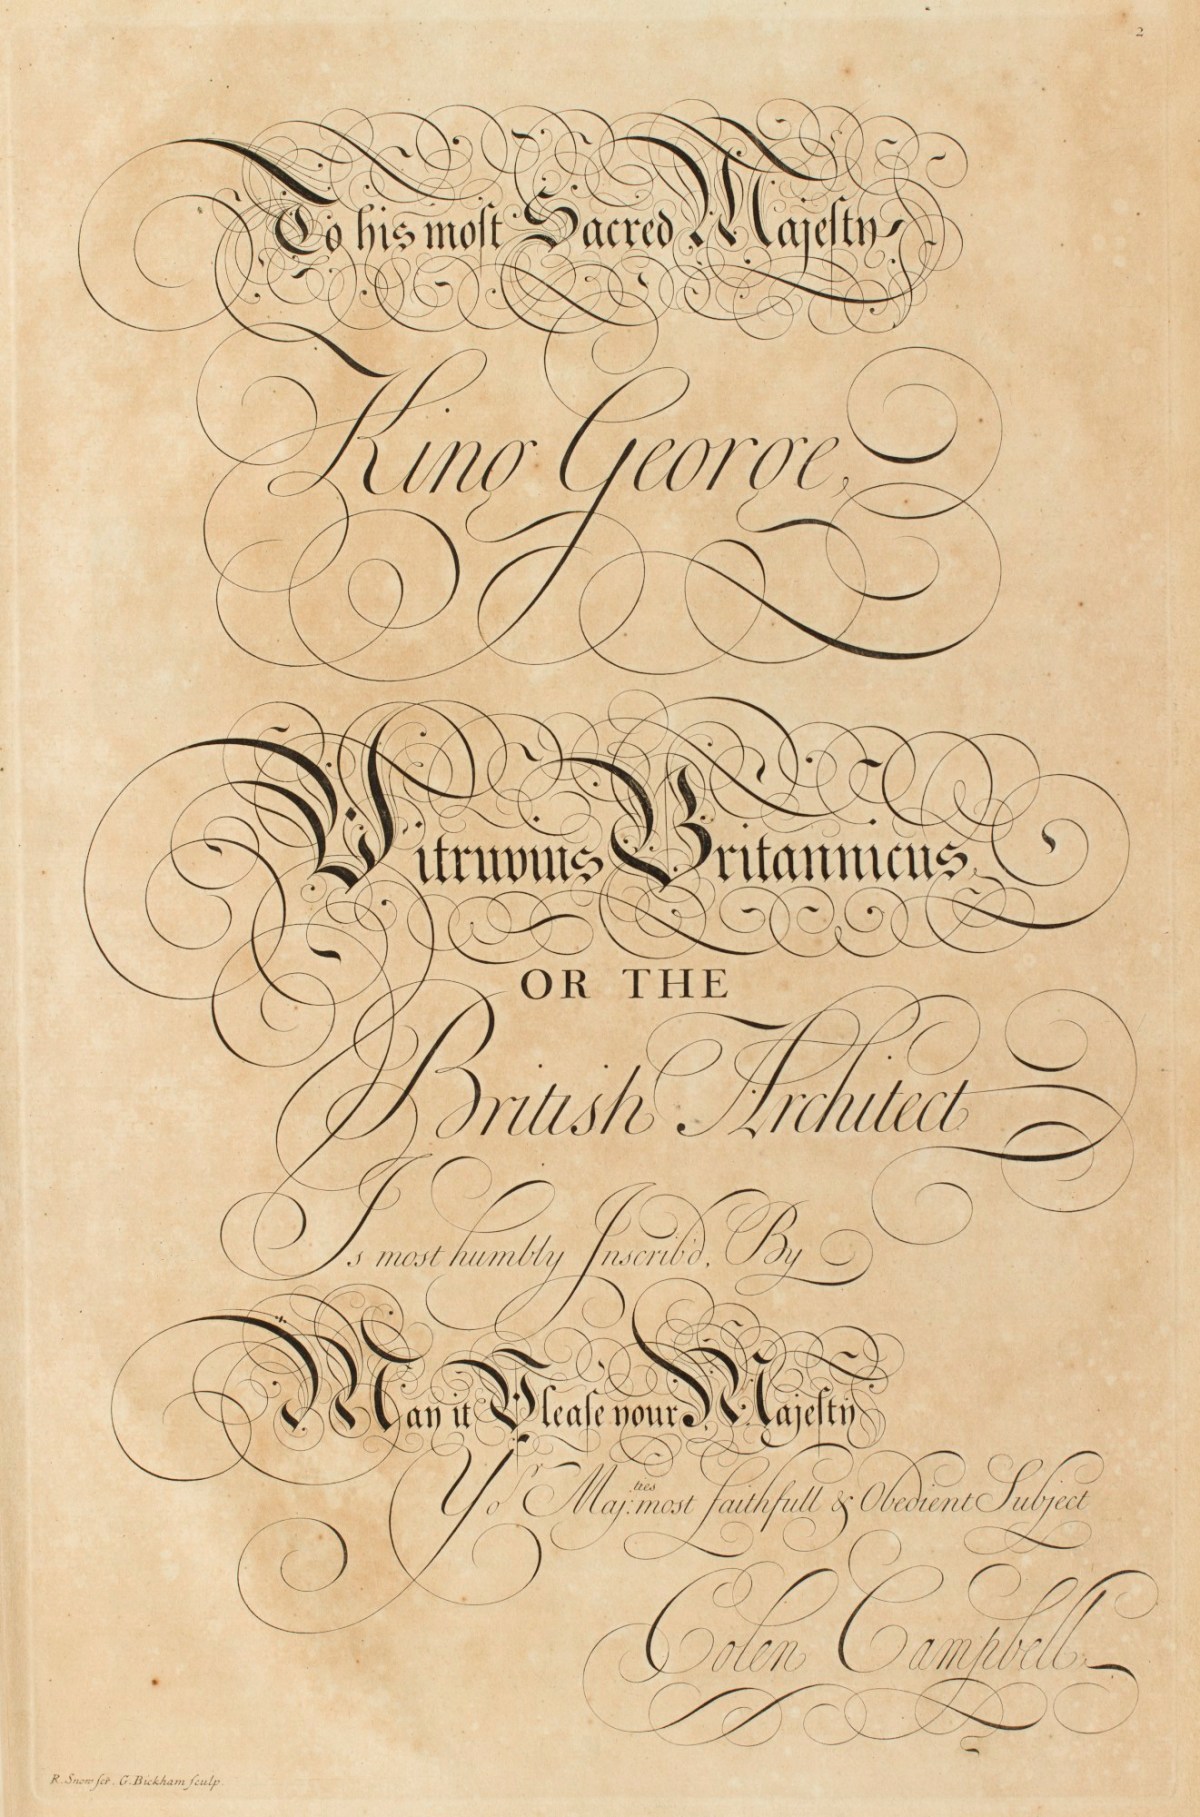 2
To his moſt Sacred Majeſty
King George,
Vitruvius Britannicus,
OR THE
British Architect
Is most humbly Inscrib'd, By
May it Pleaſe your Majeſty
Yor Maj:ties most faithfull & Obedient Subject
Colen Campbell,
R. Snow ſcr. G. Bickham ſculp.